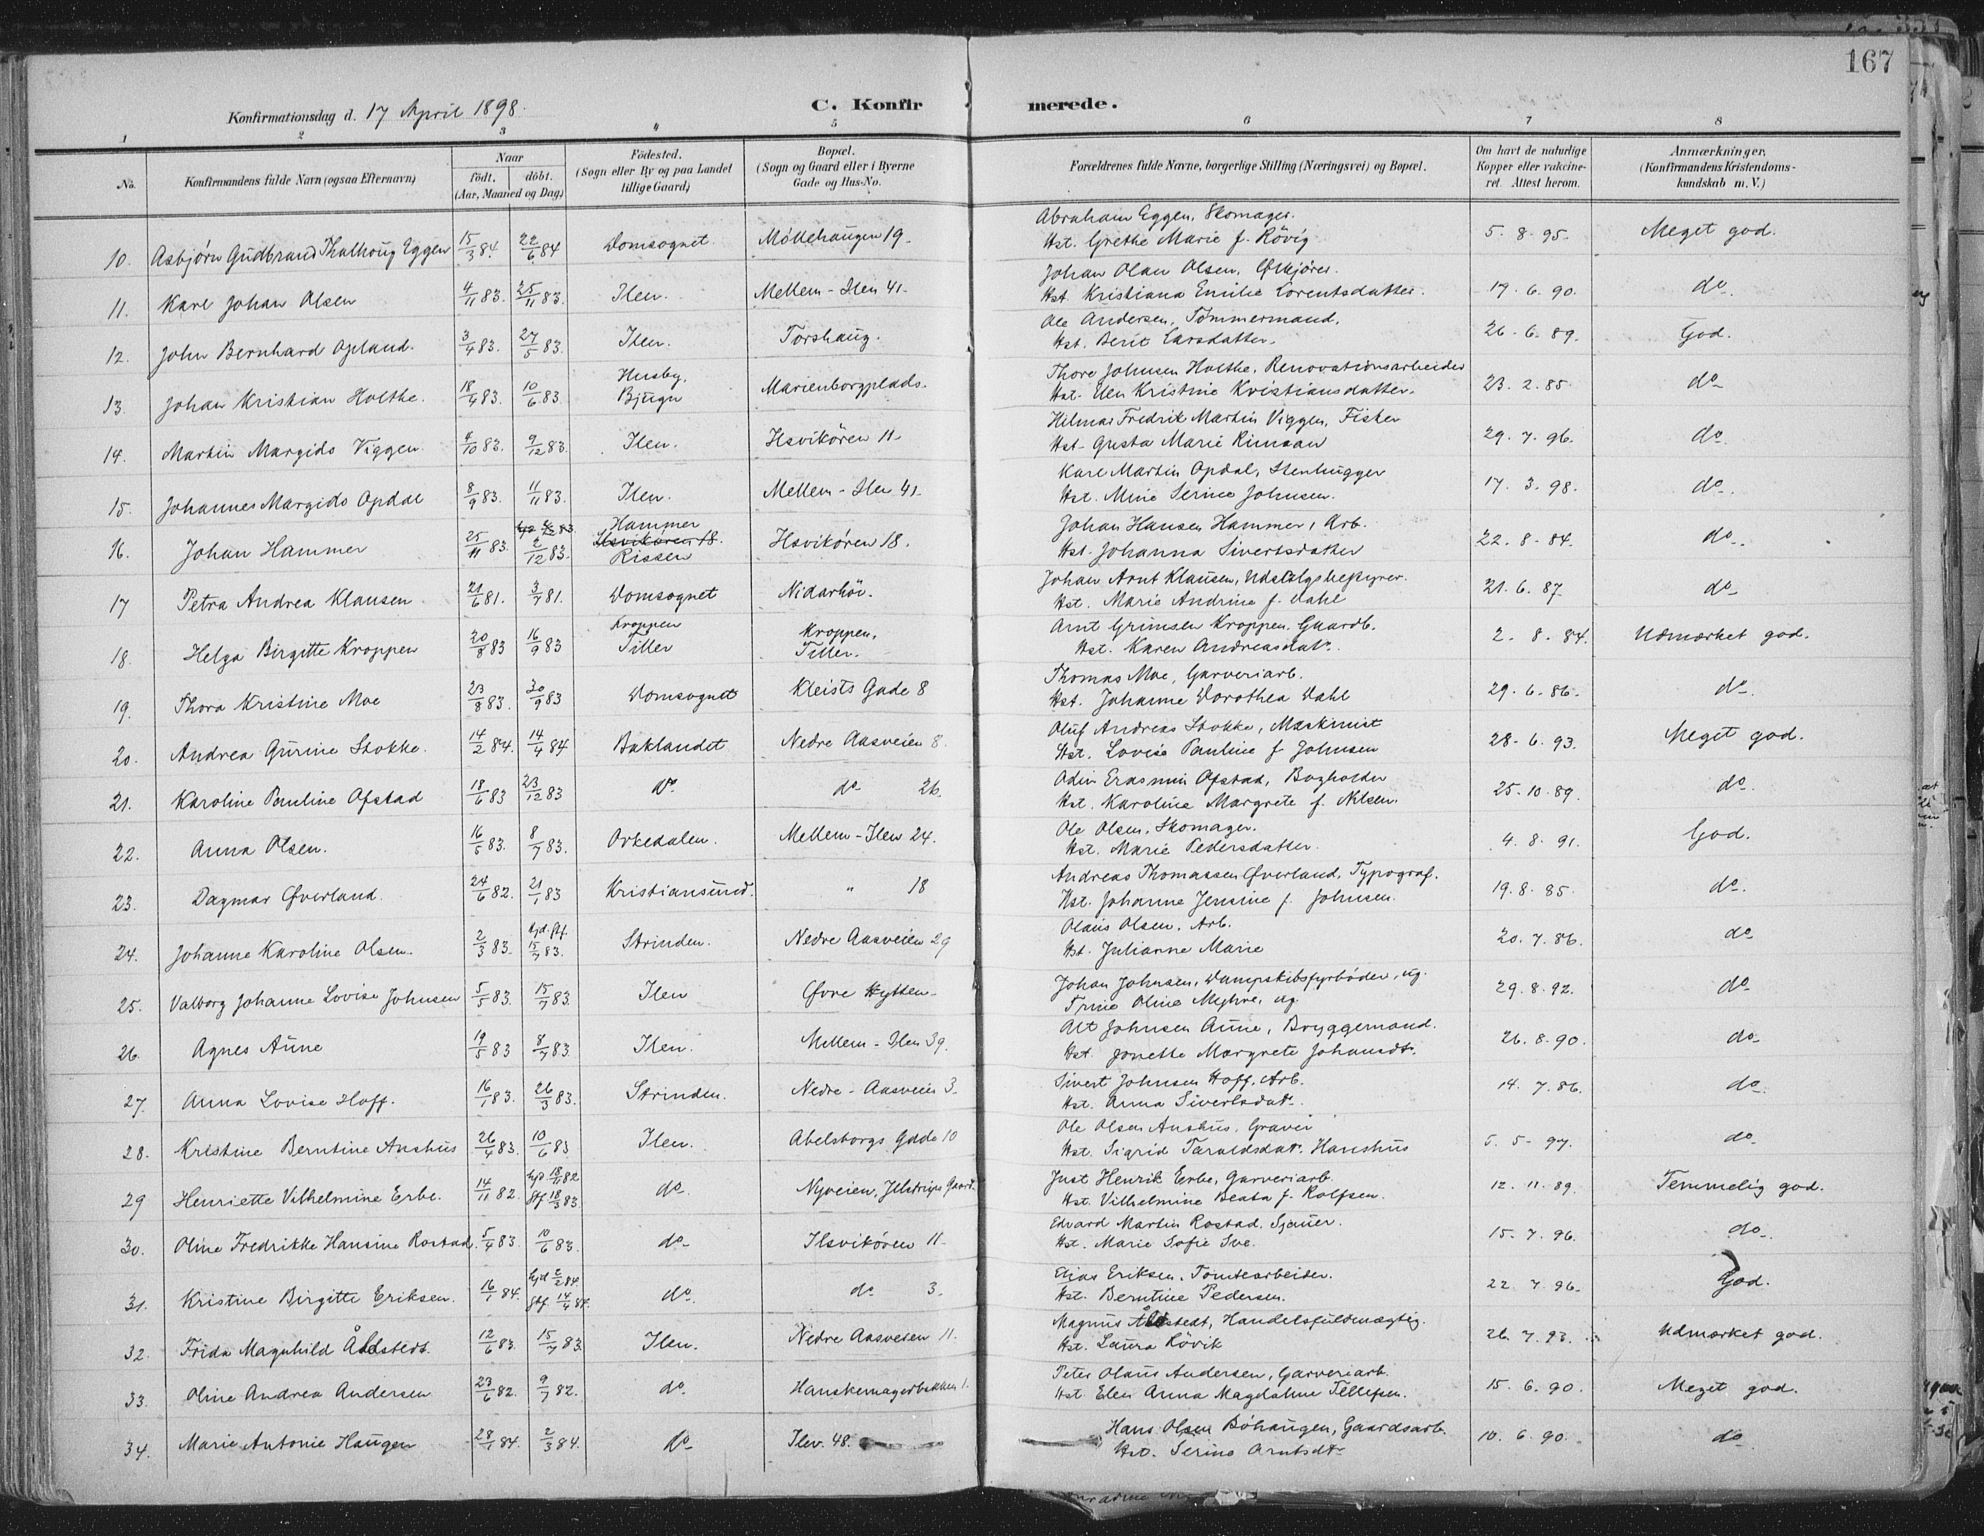 167
Konfirmationsdag d. 17 April 1898.
C. Konfirmerede.
1 2 3 4 5 6 7 8
No.
Konfirmandens fulde Navn (ogsaa Efternavn)
Naar
födt. döbt.
(Aar, Maaned og Dag)
Födested.
(Sogn eller By og paa Landet tillige Gaard)
Bopæl.
(Sogn og Gaard eller i Byerne Gade og Hus-No.
Forældrenes fulde Navne, borgerlige Stilling (Næringsvei) og Bopæl.
Om havt de naturlige Kopper eller vakcineret. Attest herom.
Anmærkninger,
(Konfirmandens Kristendomskundskab m. V.)
10. Asbjørn Gudbrand Thalhoug Eggen 15/3 84. 22/6 84 Domsognet. Möllehaugen 19. Abraham Eggen, Skomager. Hst. Grethe Marie f. Rövig 5. 8. 95. Meget god.
11. Karl Johan Olsen 4/11 83. 25/11 83. Ilen. Mellem-Ilen 41. Johan Olan Olsen, Ølkjörer. Hst. Kristiana Emilie Lorentsdatter. 17. 6. 90. do.
12. John Bernhard Opland. 3/4 83. 27/5 83. Ilen. Torshaug. Ole Andersen, Tømmermand. Hst. Berit Larsdatter. 26. 6. 89. God.
13. Johan Kristian Holthe. 18/4 83. 10/6 83. Husby, Bjugn Marienborgplads. Thore Johnsen Holthe, Renovationsarbeider Hst. Elen Kristine Kristiansdatter. 23. 2. 85 do
14. Martin Margido Viggen. 8/10 83. 9/12 83. Ilen. Ilsvikören 11. Hilmar Fredrik Martin Viggen, Fisker Hst. Gusta Marie Rimsan 29. 7. 96. do
15. Johannes Margido Opdal 8/9 83. 11/11 83. Ilen. Mellem-Ilen 41. Karl Martin Opdal, Stenhugger Hst. Mine Serine Johnsen. 17. 3. 98. do.
16. Johan Hammer 25/11 83. 2/12 83. Hammer Rissen Ilsvikören 18. Johan Hansen Hammer, Arb. Hst. Johanna Sivertsdatter 22. 8. 84. do.
17 Petra Andrea Klausen 21/6 81. 3/7 81. Domsognet Nidarhöi. Johan Arnt Klausen, Udsalgsbestyrer. Hst. Marie Andrine f. Dahl 21. 6. 87. do
18. Helga Birgitte Kroppen 20/8 83 16/9 83 Kroppen Tiller Kroppen, Tiller. Arnt Grimsen Kroppen, Gaardb. Hst. Karen Andreasdatr. 2. 8. 84. Udmærket god.
19. Thora Kristine Moe 23/8 83. 30/9 83 Domsognet Kleists Gade 8 Thomas Moe, Garveriarb. Hst. Johanne Dorothea Dahl 29. 6. 86. do.
20. Andrea Gurine Stokke. 14/2 84. 14/4 84 Baklandet Nedre Aasveien 8. Oluf Andreas Stokke, Maskinist Hst. Lovise Pauline f. Johnsen 28. 6. 93. Meget god.
21. Karoline Pauline Ofstad 18/6 83 23/12 83 do do 26. Odin Erasmus Ofstad, Bogholder Hst. Karoline Margrete f. Nilsen. 25. 10. 89. do.
22. Anna Olsen. 16/5 83. 8/7 83. Orkedalen. Mellem-Ilen 24. Ole Olsen, Skomager. Hst. Marie Pedersdatter. 4. 8. 91. God.
23. Dagmar Øverland. 24/6 82. 21/1 83 Kristiansund. " 18 Andreas Thomassen Øverland, Typograf. Hst. Johanne Jensine f. Johnsen. 19. 8. 85 do.
24. Johanne Karoline Olsen. 2/3 83. hjd. stf. 15/7 83. Strinden. Nedre Aasveien 29 Olaus Olsen, Arb. Hst. Julianne Marie 20. 7. 86. do
25. Valborg Johanne Lovise Johnsen 5/5 83. 15/7 83. Ilen Øvre Hytten Johan Johnsen, Dampskibsfyrböder, ug. Trine Oline Myhre, ug. 29. 8. 92. do
26. Agnes Aune 19/5 83 8/7 83. Ilen. Mellem-Ilen 39. Alt Johnsen Aune, Bryggemand. Hst. Jonette Margrete Johansdtr. 26. 8. 90. do
27. Anna Lovise Hoff. 16/1 83. 26/3 83. Strinden. Nedre-Aasveien 3. Sivert Johnsen Hoff, Arb. Hst. Anna Sivertsdatr. 14. 7. 86. do
28. Kristine Berntine Aushus 26/4 83. 10/6 83 Ilen. Abelsborgs Gade 10 Ole Olsen Aushus, Graver Hst. Sigrid Taraldsdatr. Hanshus 5. 5. 97. do.
29 Henriette Vilhelmine Erbe. 14/11 82. hjd. 18/11 82 stf 18/3 83. do. Nyveien, Jelstrups Gaard. Just Henrik Erbe, Garveriarb. Hst. Vilhelmine Beata f. Rolfsen. 12. 11. 89. Temmelig god.
30. Oline Fredrikke Hansine Rostad. 5/4 83. 10/6 83. do Ilsvikören 11. Edvard Martin Rostad, Sjauer. Hst. Marie Sofie Sve. 15. 7. 96. do.
31. Kristine Birgitte Eriksen. 16/1 84. hjd 2/2 84. stf. 14/4 84. do. do 3. Elias Eriksen, Tomtearbeider. Hst. Berntine Pedersen. 22. 7. 96. God.
32. Frida Magnhild Åldstedt. 12/6 83. 15/7 83. Ilen. Nedre Aasveien 11. Magnus Åldstedt, Handelsfuldmægtig. Hst. Laura Rövik 26. 7. 93. Udmærket god.
33. Oline Andrea Andersen 23/6 82. 9/7 82. do. Hanskemagerbakken 1. Peter Olaus Andersen, Garveriarb. Hst Elen Anna Magdalene Tellefsen. 15. 6. 90. Meget god.
34. Marie Antonie Haugen 28/1 84. 2/3 84. do Ilev. 48. Hans Olsen Böhaugen, Gaardsarb. Hst. Serine Arntsdtr 10. 6. 90. do